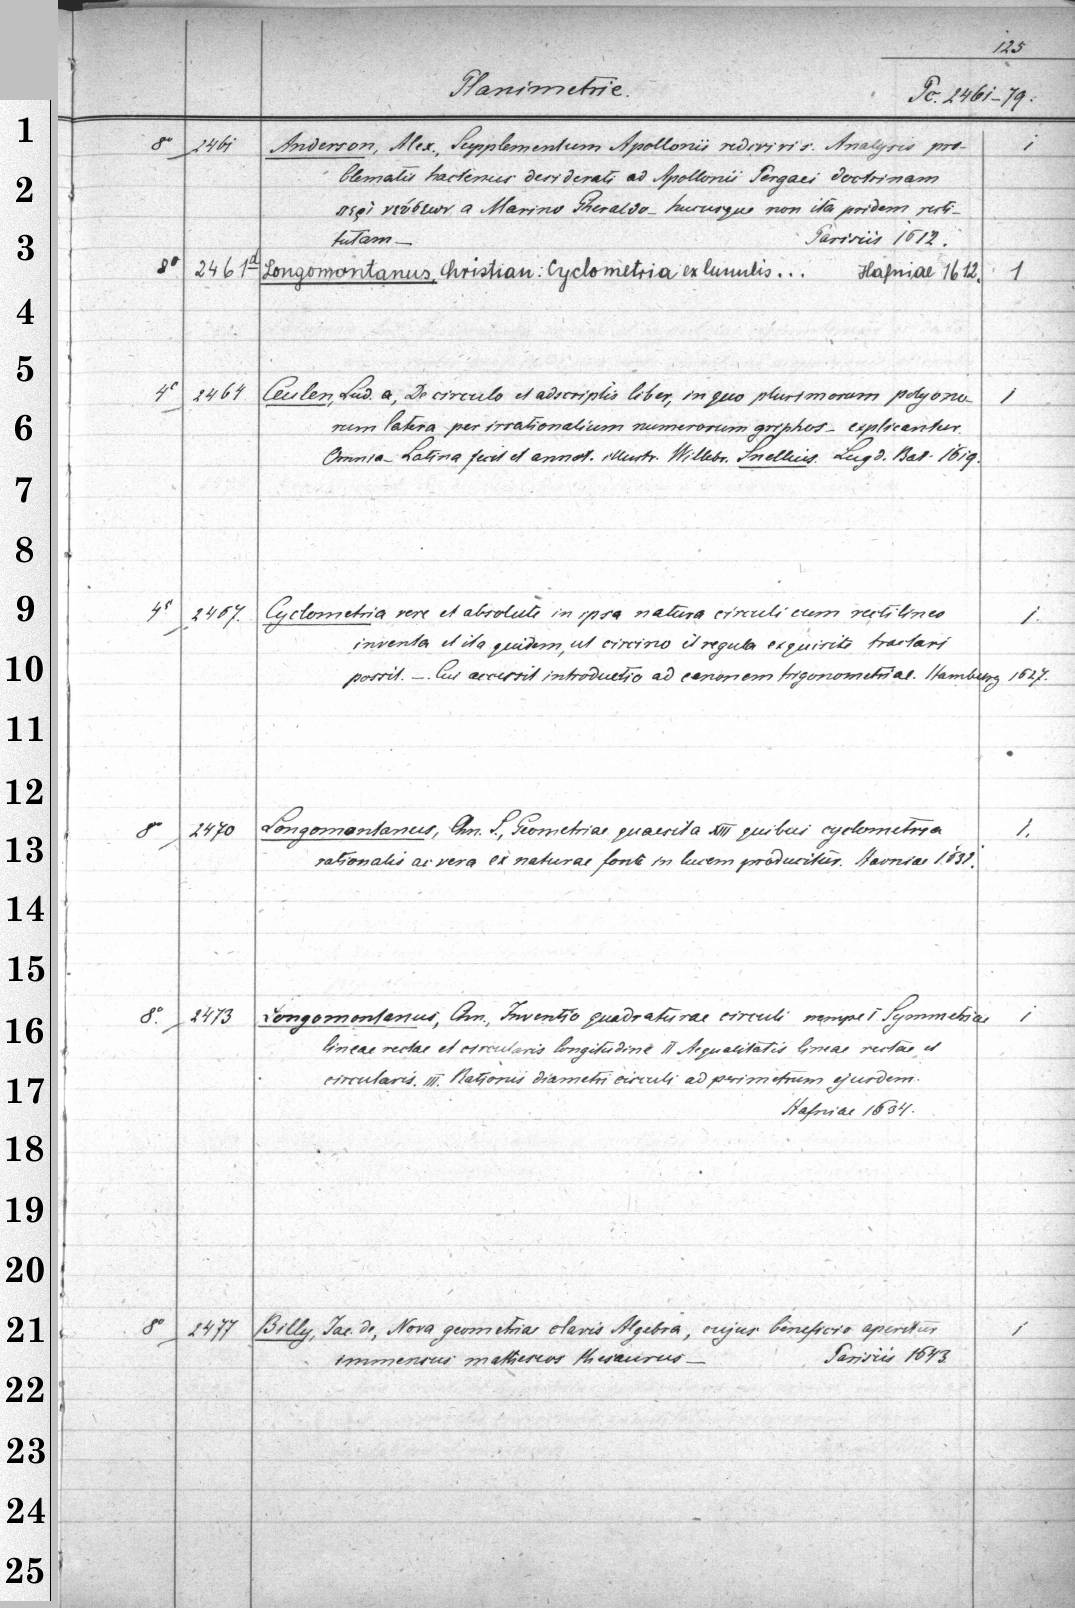 125
Planimetrie.
Pc. 2461-79.
8° 2461 Anderson, Alex., Supplementum Apollonii redivivi s. Analysis pro- 1
blematis hactenus desiderati ad Apollonii Pergaei doctrinam
περὶ νεύσεων a Marino Ghetaldo - hucusque non ita pridem resti-
tutam - Parisiis 1612.
8° 2461a Longomontanus, Christian: Cyclometria ex lunulis ... Hafniae 1612. 1
4° 2464 Ceulen, Lud. a, De circulo et adscriptis liber, in quo plurimorum polygono- 1
rum latera per irrationalium numerorum griphos - explicantur.
Omnia - Latina fecit et annot. illustr. Willebr. Snellius. Lugd. Bat. 1619.
4° 2467. Cyclometria vere et absolute in ipsa natura circuli cum rectilineo 1.
inventa et ita quidem, ut circino et regula exquisite tractari
possit. - Cui accessit introductio ad canonem trigonometriae. Hamburg 1627.
8° 2470 Longomontanus, Chn. S., Geometriae quaesita XIII quibus cyclometria 1.
rationalis ac vera ex naturae fonte in lucem producitur. Havniae 1631.
8°. 2473 Longomontanus, Chn., Inventio quadraturae circuli nempe I Symmetriae 1
lineae rectae et circularis longitudine II Aequalitatis lineae rectae et
circularis. III. Rationis diametri circuli ad perimetrum ejusdem.
Hafniae 1634.
8° 2477 Billy, Jac. de, Nova geometriae clavis Algebra, cujus beneficio aperitur 1
immensus matheseos thesaurus - Parisiis 1643
1
2
3
4
5
6
7
8
9
10
11
12
13
14
15
16
17
18
19
20
21
22
23
24
25